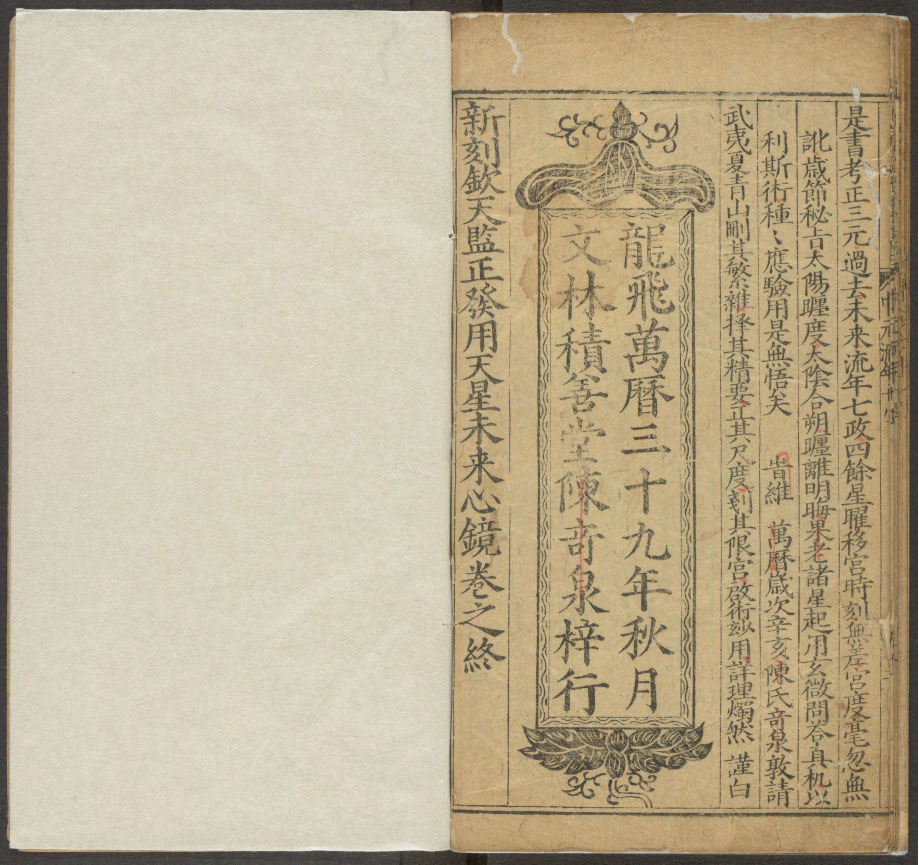 是書考正三元過去未来流年七政四餘星曜移宮時刻無差宮度毫忽無
訛歳節秘旨太陽躔度太陰合朔躔離明晦果老諸星起用玄微問荅真机以
利斯術種〻應驗用是無悟矣 旹維 萬曆歳次辛亥陳氏竒泉敦請
武夷夏青山刪其繁雜擇其精要正其尺度刻其限宮啟術玅用詳理燭然 謹白
龍飛萬曆三十九年秋月
文林積善堂陳竒泉梓行
新刻欽天監正發用天星未来心鏡卷之終